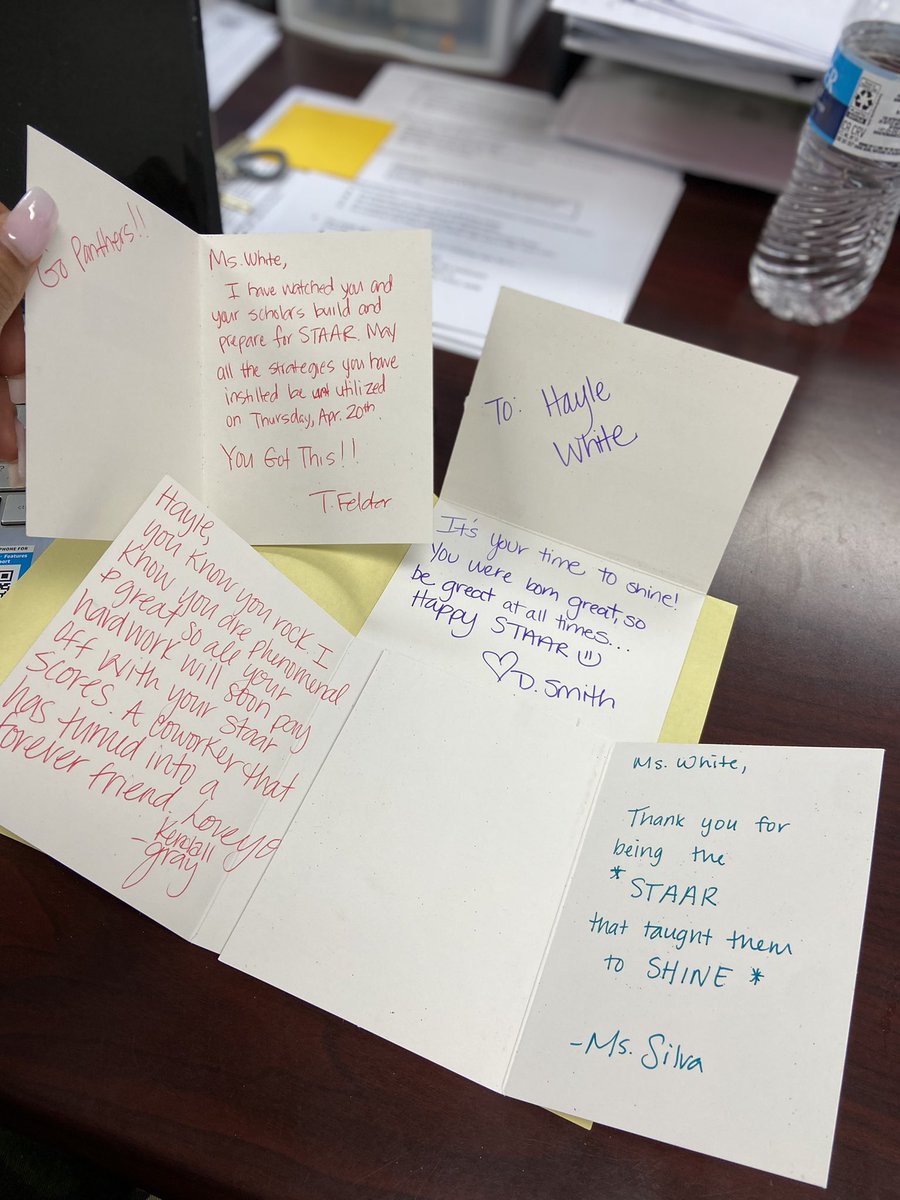 Go Panthers!!
Ms. White,
I have watched you and
your scholars build and
prepare for STAAR. May
all the strategies you have
instilled be utilized
on Thursday, Apr. 20th.
You Got This!!
T. Felder
To: Hayle
White
It's your time to shine!
You were born great, so
be great at all times...
Happy STAAR
D. Smith
Hayle,
you know you rock. I
know you are phenomenal
& great so all your
hardwork will soon pay
off with your Staar
Scores. A coworker that
has turned into a
forever friend. Love yo
Kendall
-gray
Ms. White,
Thank you for
being the
*STAAR
that taught them
to SHINE *
-Ms. Silva